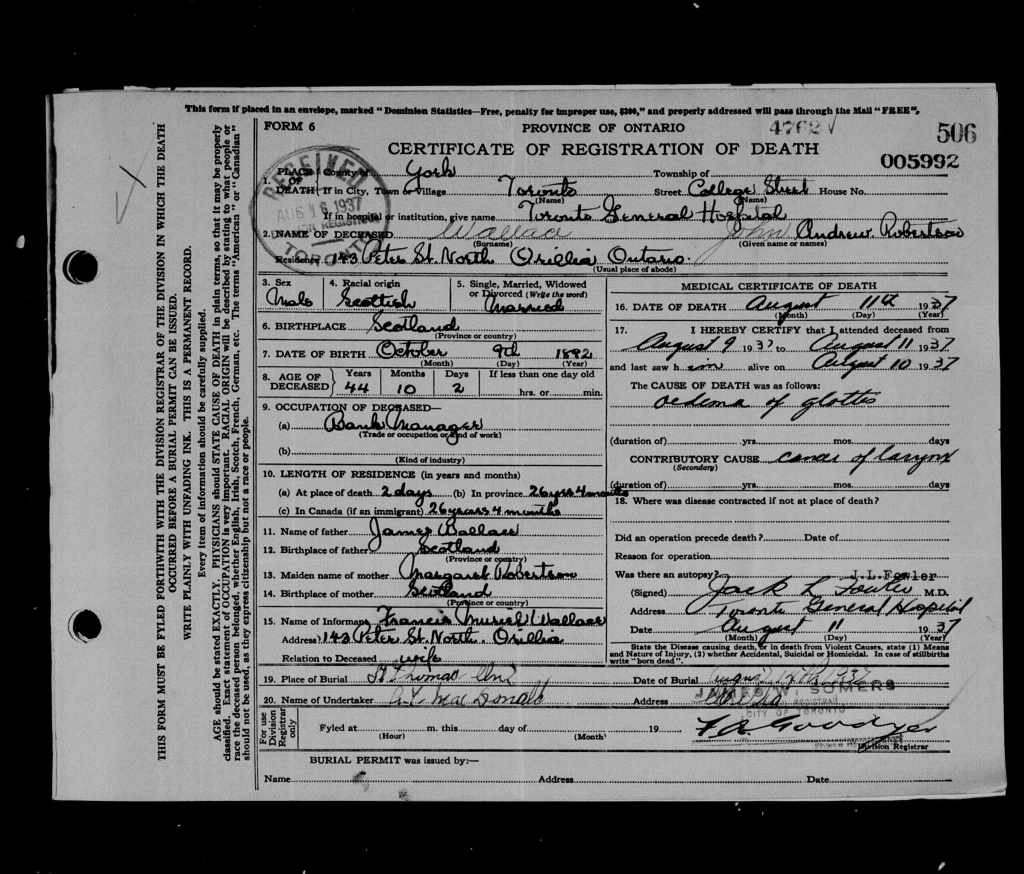 This form if placed in an envelope, marked "Dominion Statistics—Free, penalty for improper use, $300," and properly addressed will pass through the Mail "FREE",
THIS FORM MUST BE FYLED FORTHWITH WITH THE DIVISION REGISTRAR OF THE DIVISION IN WHICH THE DEATH
OCCURRED BEFORE A BURIAL PERMIT CAN BE ISSUED.
WRITE PLAINLY WITH UNFADING INK. THIS IS A PERMANENT RECORD.
Every item of information should be carefully supplied.
AGE should be stated EXACTLY. PHYSICIANS should STATE CAUSE OF DEATH in plain terms, so that it may be properly
classified. Exact statement of OCCUPATION is very important. RACIAL ORIGIN will be described by stating to what people or
race the deceased person belonged, whether English, Irish, Scotch, French, German, etc. The terms "American" or "Canadian"
should not be used, as they express citizenship but not a race or people.
FORM 6 PROVINCE OF ONTARIO 4762 506
CERTIFICATE OF REGISTRATION OF DEATH 005992
RECEIVED
AUG 16 1937
TORONTO
1. PLACE OF DEATH County of York Township of
If in City, Town or Village Toronto Street College Street House No.
(Name) (Name)
If in hospital or institution, give name Toronto General Hospital
2. NAME OF DECEASED Wallace John Andrew Robertson
(Surname) (Given name or names)
Residence 143 Peter St. North Orillia Ontario.
(Usual place of abode)
3. Sex Male
4. Racial origin Scottish
5. Single, Married, Widowed or Divorced (Write the word) Married
6. BIRTHPLACE Scotland
(Province or country)
7. DATE OF BIRTH October 9th 1892
(Month) (Day) (Year)
8. AGE OF DECEASED Years Months Days If less than one day old
44 10 2 hrs. or min.
9. OCCUPATION OF DECEASED—
(a) Bank Manager
(Trade or occupation or kind of work)
(b)
(Kind of industry)
10. LENGTH OF RESIDENCE (in years and months)
(a) At place of death 2 days (b) In province 26 yrs 4 months
(c) In Canada (if an immigrant) 26 years 4 months
11. Name of father James Wallace
12. Birthplace of father Scotland
(Province or country)
13. Maiden name of mother Margaret Robertson
14. Birthplace of mother Scotland
(Province or country)
15. Name of Informant Francis Muriel Wallace
Address 143 Peter St. North. Orillia
Relation to Deceased wife
MEDICAL CERTIFICATE OF DEATH
16. DATE OF DEATH August 11th 1937
(Month) (Day) (Year)
17. I HEREBY CERTIFY that I attended deceased from
August 9 1937 to August 11 1937
and last saw him alive on August 10 1937
The CAUSE OF DEATH was as follows:
oedema of glottis
(duration of) yrs. mos. days
CONTRIBUTORY CAUSE cancer of larynx
(Secondary)
(duration of) yrs. mos. days
18. Where was disease contracted if not at place of death?
Did an operation precede death? Date of
Reason for operation
Was there an autopsy? J.L.Fowler
(Signed) Jack L Fowler M.D.
Address Toronto General Hospital
Date August 11 1937
(Month) (Day) (Year)
State the Disease causing death, or in death from Violent Causes, state (1) Means
and Nature of Injury, (2) whether Accidental, Suicidal or Homicidal. In case of stillbirths
write "born dead".
19. Place of Burial St Thomas Ont Date of Burial August
20. Name of Undertaker A. L. MacDonald Address
JAMES W. SOMERS
CITY OF TORONTO
For use Division Registrar only
Fyled at m. this day of 19
(Hour) (Month) Division Registrar
BURIAL PERMIT was issued by:—
Name Address Date